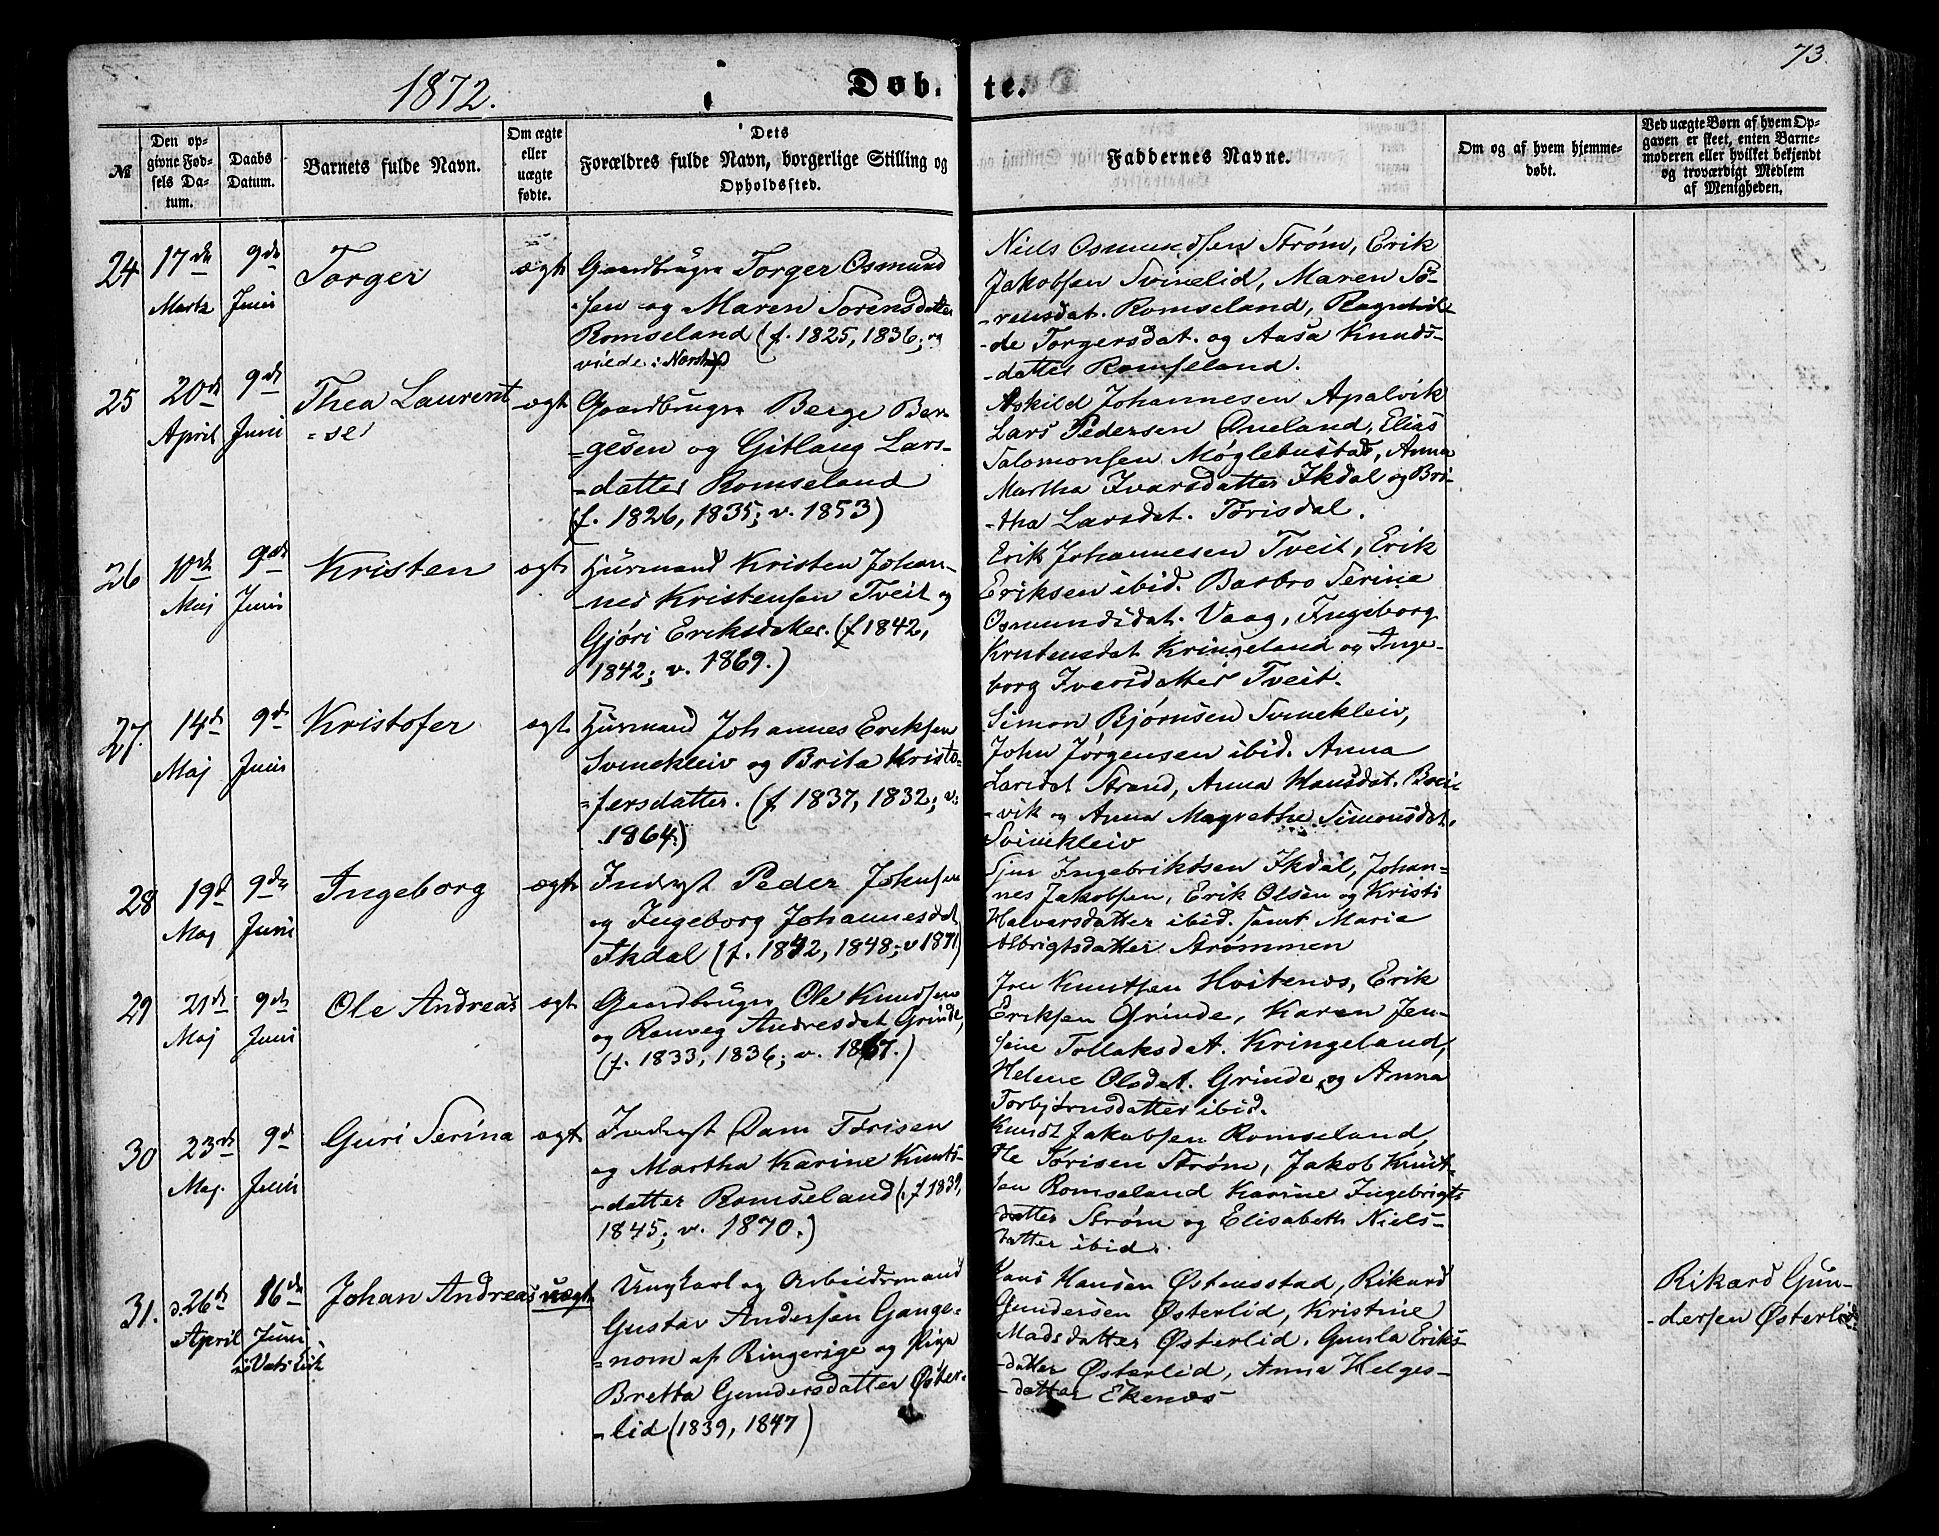 73.
1872.
Døb. te.
№
Den op-
givne Fød-
sels Da-
tum.
Daabs
Datum.
Barnets fulde Navn.
Om ægte
eller
uægte
fødte.
Dets
Forældres fulde Navn, borgerlige Stilling og
Opholdssted.
Faddernes Navne.
Om og af hvem hjemme-
døbt.
Ved uægte Børn af hvem Op-
gaven er skeet, enten Barne-
moderen eller hvilket bekjendt
og troværdigt Medlem
af Menigheden.
24
17de
Marts
9de
Juni
Torger
ægt
Gaardbruger Torger Osmund
-sen og Maren Sørensdatter
Romseland (f. 1825, 1836; og
viede i
Niels Osmundsen Strøm, Erik
Jakobsen Svinelid, Maren Sø-
-rensdat. Romseland, Ragnhil-
-de Torgersdat. og Aasa Knuds-
-datter Romseland.
25
20de
April
9de
Juni
Thea Laurent
-se
ægt
Gaardbruger Berge Ber-
-gesen og Gitlaug Lars-
-datter Romseland
(f. 1826, 1835; v. 1853)
Askild Johannesen Apalvik
Lars Pedersen Øneland, Elias
Salomonsen Møglebustad, Anna
Martha Ivarsdatter Ikdal og Bri-
-tha Larsdat. Tørisdal.
26
10de
Maj
9de
Juni
Kristen
ægt
Huusmand Kristen Johan-
-nes Kristensen Tveit og
Gjøri Eriksdatter. (f 1842,
1842; v. 1869.)
Erik Johannesen Tveit, Erik
Eriksen ibid. Barbro Serine
Osmundsdat. Vaag, Ingeborg
Knutensdat Kringeland og Inge-
borg Iversdatter Tveit.
27.
14de
Maj
9de
Juni
Kristofer
ægt
Huusmand Johannes Eriksen
Svinekleiv og Brita Kristo-
-fersdatter. (f 1837, 1832; v.
1864.)
Simon Bjørnsen Svinekleiv,
John Jørgensen ibid. Anna
Larsdat Strand, Anna Hansdat. Brei
-vik og Anna Magrethe Simonsdat.
Svinekleiv
28
19de
Maj
9de
Juni
Ingeborg
ægt
Inderst Peder Johnsen
og Ingeborg Johannesdat
Ikdal (f. 1842, 1848; v 1871)
Sjur Ingebriktsen Ikdal, Johan-
nes Jakobsen, Erik Olsen og Kristi
Halversdatter ibid. samt Maria
Albrigtsdatter Strømmen
29
21de
Maj
9de
Juni
Ole Andreas
ægt
Gaardbruger Ole Knudsen
og Ranveg Andresdat Grinde,
(f. 1833, 1836; v. 1867.)
Knutsen Hvitenes, Erik
Eriksen Grinde, Karen Jen-
sine Tollaksdat. Kringeland,
Helene Olsdat. Grinde og Anna
Torbjørnsdatter ibid.
30
23de
Maj.
9d
Juni
Guri Serina
ægt
Inderst Dam Tørisen
og Martha Karine Knuts-
-datter Romseland (f 1839,
1845; v. 1870.)
Knudt Jakobsen Romseland,
Ole Tørisen Strøm, Jakob Knut-
sen Romseland Karine Ingebrigts
datter Strøm og Elisabeth Niels-
datter ibid.
31.
d. 26de
April
16de
Juni
i Vats Kirk
Johan Andreas
uægt
Ungkarl og Arbeidsmand
Gustav Andersen Gange-
-nom af Ringerige og Pige
Bretta Gundersdatter Øster-
-lid (1839, 1847)
Hans Hansen Østensstad, Rikard
Gundersen Østerlid, Kristine
Madsdatter Østerlid, Gunla Eriks-
-datter Østerlid, Anna Helges-
-datter Ekenes
Rikard Gun-
-dersen Østerlid.